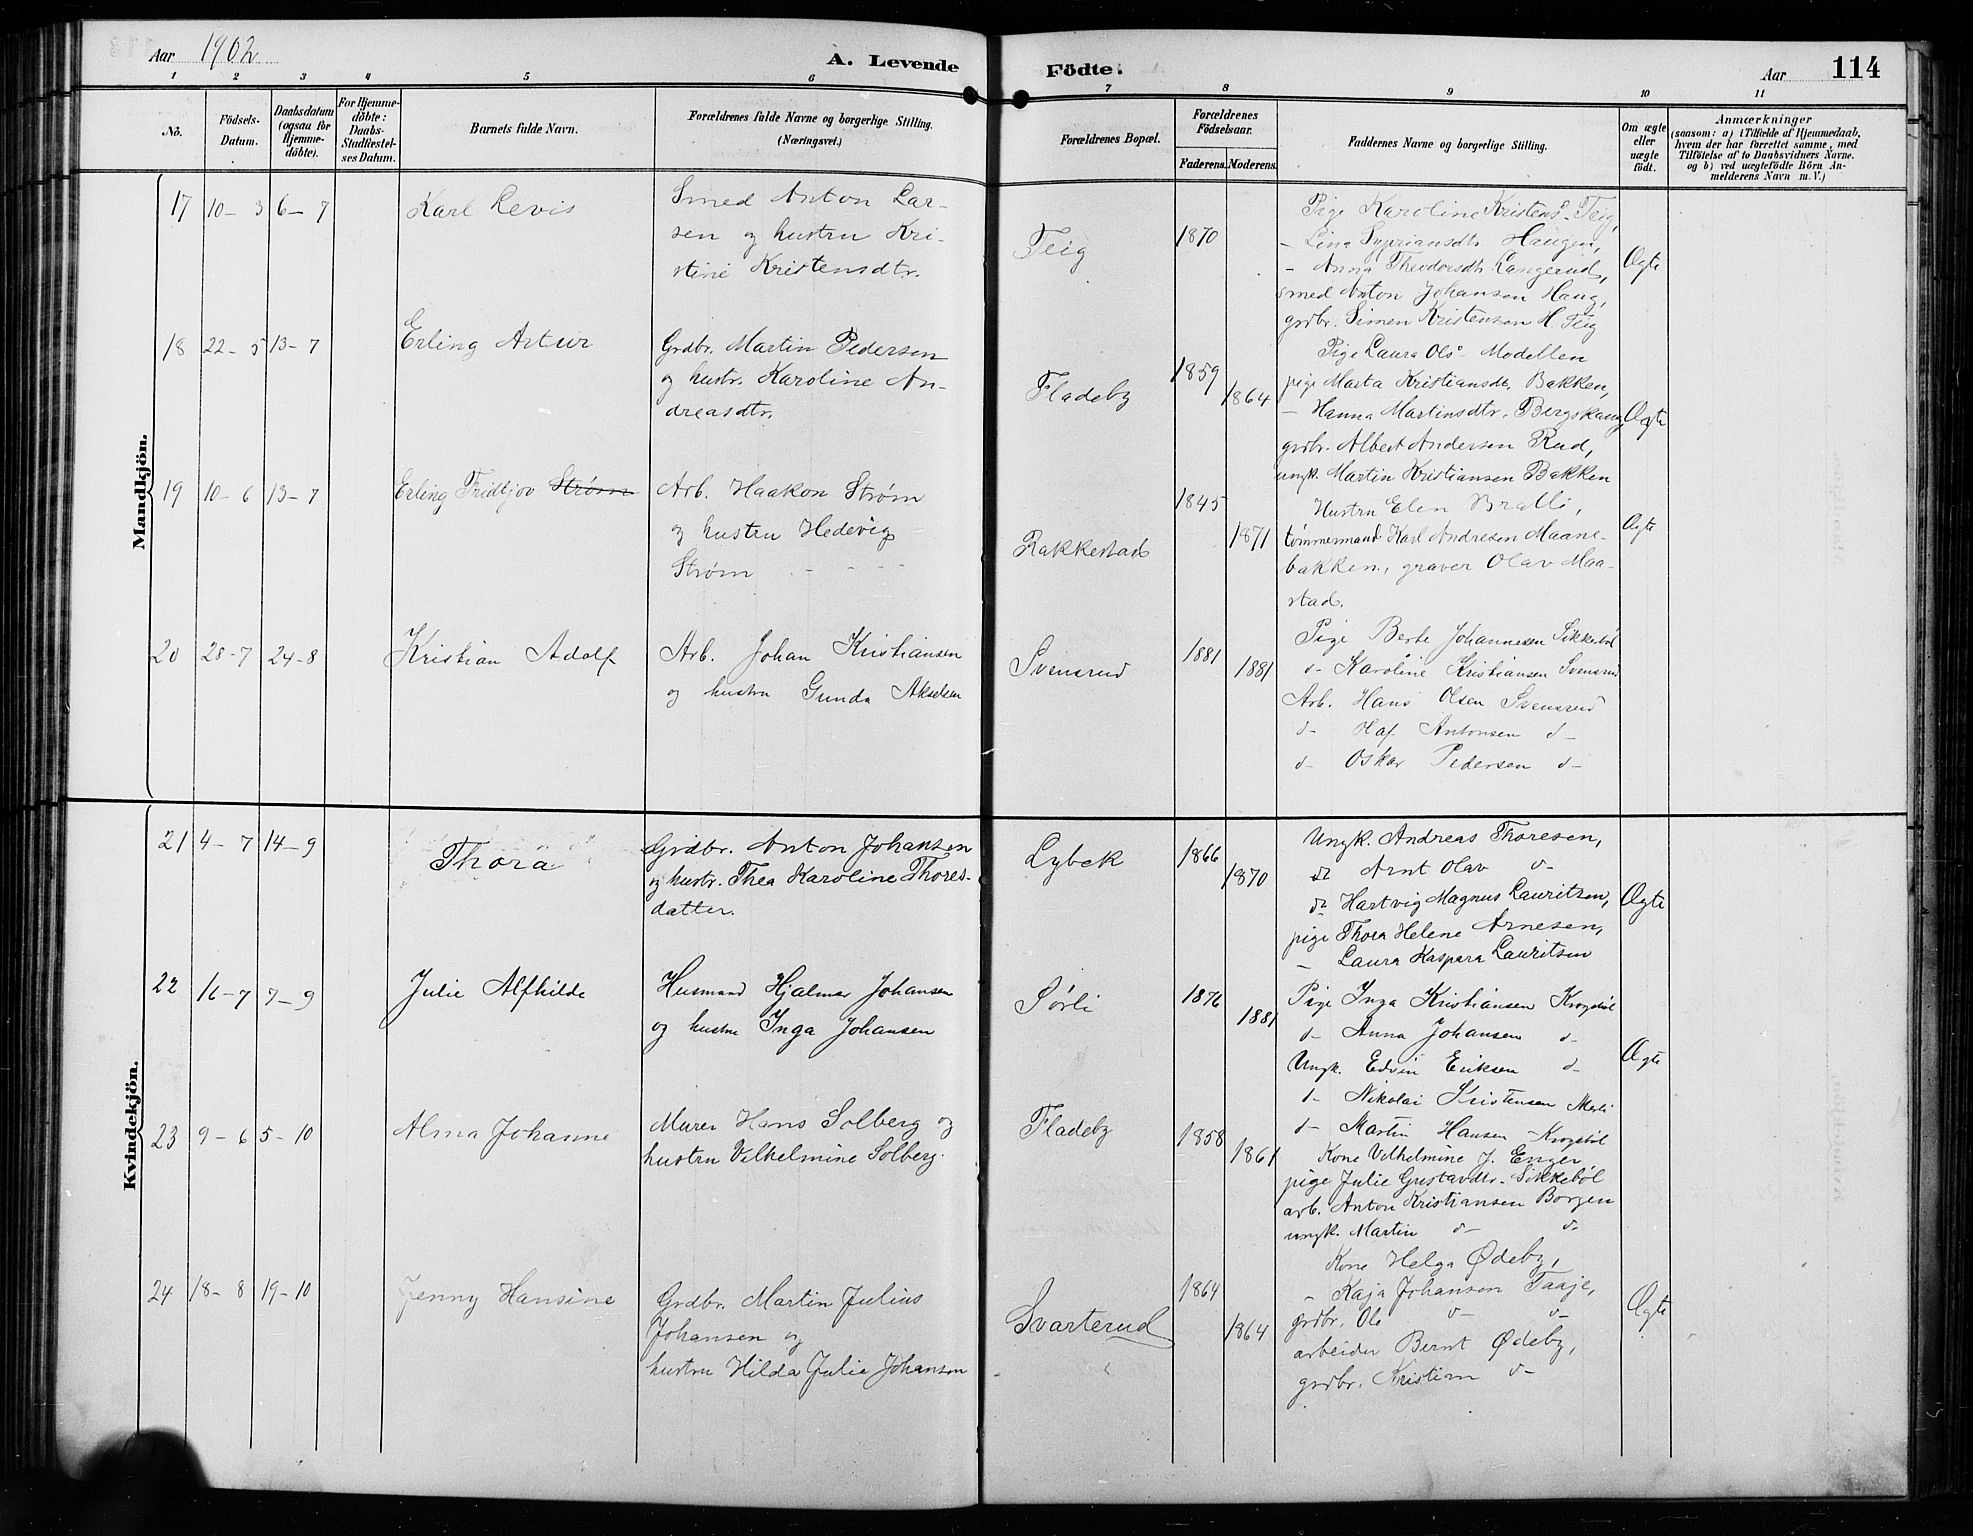 Aar 1902
A. Levende Födte.
Aar 114
1 2 3 4 5 6 7 8 9 10 11
No.
Födsels-
Datum.
Daabsdatum
(ogsaa for
Hjemme-
döbte).
For Hjemme-
döbte:
Daabs-
Stadfestel-
ses Datum.
Barnets fulde Navn.
Forældrenes fulde Navne og borgerlige Stilling.
(Næringsvei.)
Forældrenes Bopæl.
Forældrenes
Födselsaar.
Faderens. Moderens.
Faddernes Navne og borgerlige Stilling.
Om ægte
eller
uægte
födt.
Anmærkninger
(saasom: a) i Tilfælde af Hjemmedaab,
hvem der har forrettet samme, med
Tilföielse af to Daabsvidners Navne.
og b) ved uægtefödte Börn An-
melderens Navn m. V.)
Mandkjön.
17 10-3 6-7 Karl Levis
Smed Anton Lar-
sen og hustru Kri-
stine Kristensdtr.
Teig 1870
Pige Karoline Kristens- Teig,
- Lina Sypriansdtr. Haugen,
- Anna Theodorsdtr. Langerud,
smed Anton Johansen Haug,
grdbr. Simen Kristensen M. Teig
Ægte
18 22-5 13-7 Erling Artur
Grdbr. Martin Pedersen
og hustr. Karoline An-
dreasdtr.
Fladeby 1859 1864
Pige Laura Ols- Modellen
pige Marta Kristiansdt. Bakken,
- Hanna Martinsdtr. Bergskaug
grdbr. Albert Andersen Rud,
ungk. Martin Kristiansen Bakken
Ægte
19 10-6 13-7 Erling Fridtjov Strøm
Arb. Haakon Strøm
og hustru Hedevig
Strøm - - - -
Rakkestad 1845 1871
Hustru Elen Bralli,
tømmermand Karl Andresen Maane-
bakken, graver Olav Maa-
stad.
Ægte
20 28-7 24-8 Kristian Adolf
Arb. Johan Kristiansen
og hustru Gunda Akselsen
Svensrud 1881 1881
Pige Berte Johannesen Sikkebøl
d- Karoline Kristiansen Svensrud
Arb. Hans Olsen Svensrud
d- Haf. Antonsen d-
d- Oskar Pedersen d-
Kvindekjön.
21 4-7 14-9 Thora
Grdbr. Anton Johansen
og hustr. Thea Karoline Thores-
datter.
Lybek 1866 1870
Ungk. Andreas Thoresen,
do Arnt Olav d-
do Hartvig Magnus Lauritsen,
pige Thora Helene Arnesen,
- Laura Kaspara Lauritsen
Ægte
22 16-7 7-9 Julie Alfhilde
Husmand Hjalmar Johansen
og hustru Inga Johansen
Sørli 1876 1881
Pige Inga Kristiansen Krogsbøl
d- Anna Johansen d-
Ungk. Edvin Eriksen d-
d- Nikolai Kristensen
d- Martin Hansen Krogsbøl
Ægte
23 9-6 5-10 Alma Johanne
Murer Hans Solberg og
hustru Vilhelmine Solberg.
Fladeby 1858 1861
Kone Vilhelmine J. Enger
pige Julie Gustavdtr. Sikkebøl
arb. Anton Kristiansen Borgen
ungk. Martin d- d-
24 18-8 19-10 Jenny Hansine
Grdbr. Martin Julius
Johansen og
hustru Hilda Julie Johansen
Svarterud 1864 1864
Kone Helga Ødeby,
- Kaja Johansen Taaje,
grdbr. Ole d- d-
arbeider Bernt Ødeby,
grdbr. Kristian d-
Ægte